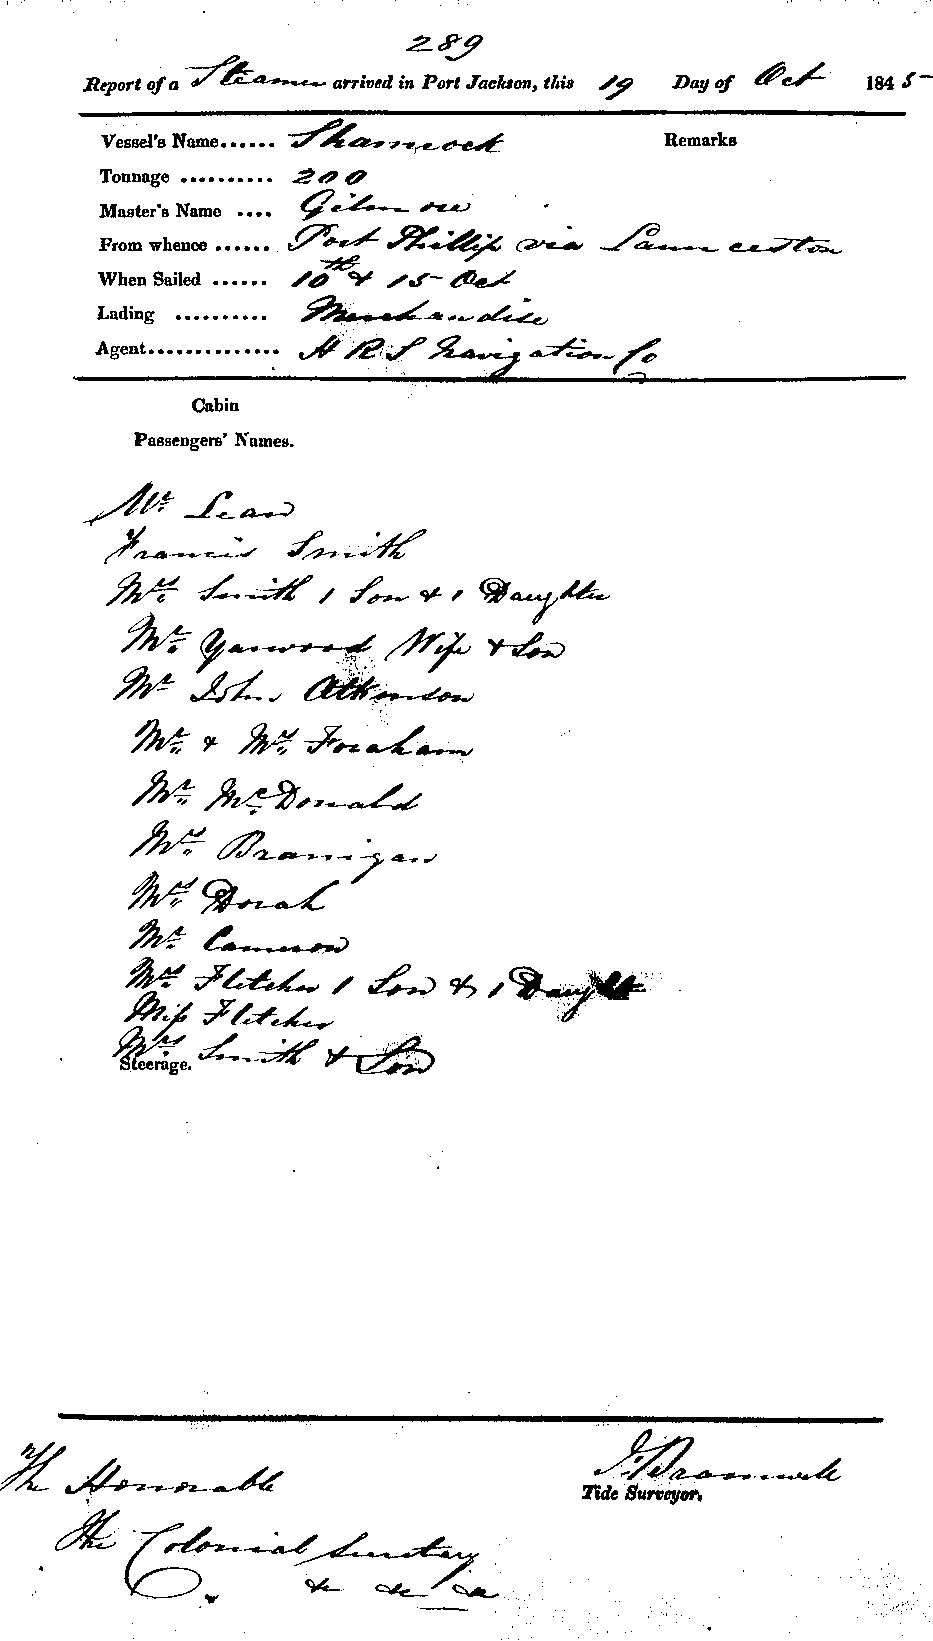 289
Report of a Steamer arrived in Port Jackson, this 19 Day of Oct 1845
Vessel's Name...... Shamrock Remarks
Tonnage .......... 200
Master's Name .... Gilmore
From whence ...... Port Phillip via Launceston
When Sailed ...... 10th & 15 Oct
Lading .......... Merchandise
Agent.............. H R S Navigation Co
Cabin
Passengers' Names.
Mr Lean
Francis Smith
Mrs Smith 1 Son & 1 Daughter
Mr Yarwood Wife & Son
Mr John Atkinson
Mr & Mrs Foraham
Mr McDonald
Mrs Branigan
Mrs Dorah
Mr Cameron
Mrs Fletcher 1 Son & 1 Daught
Miss Fletcher
Mrs Smith & Son
Steerage.
The Honorable
J. Bramwell
Tide Surveyor.
The Colonial Secretary
&c &c &c